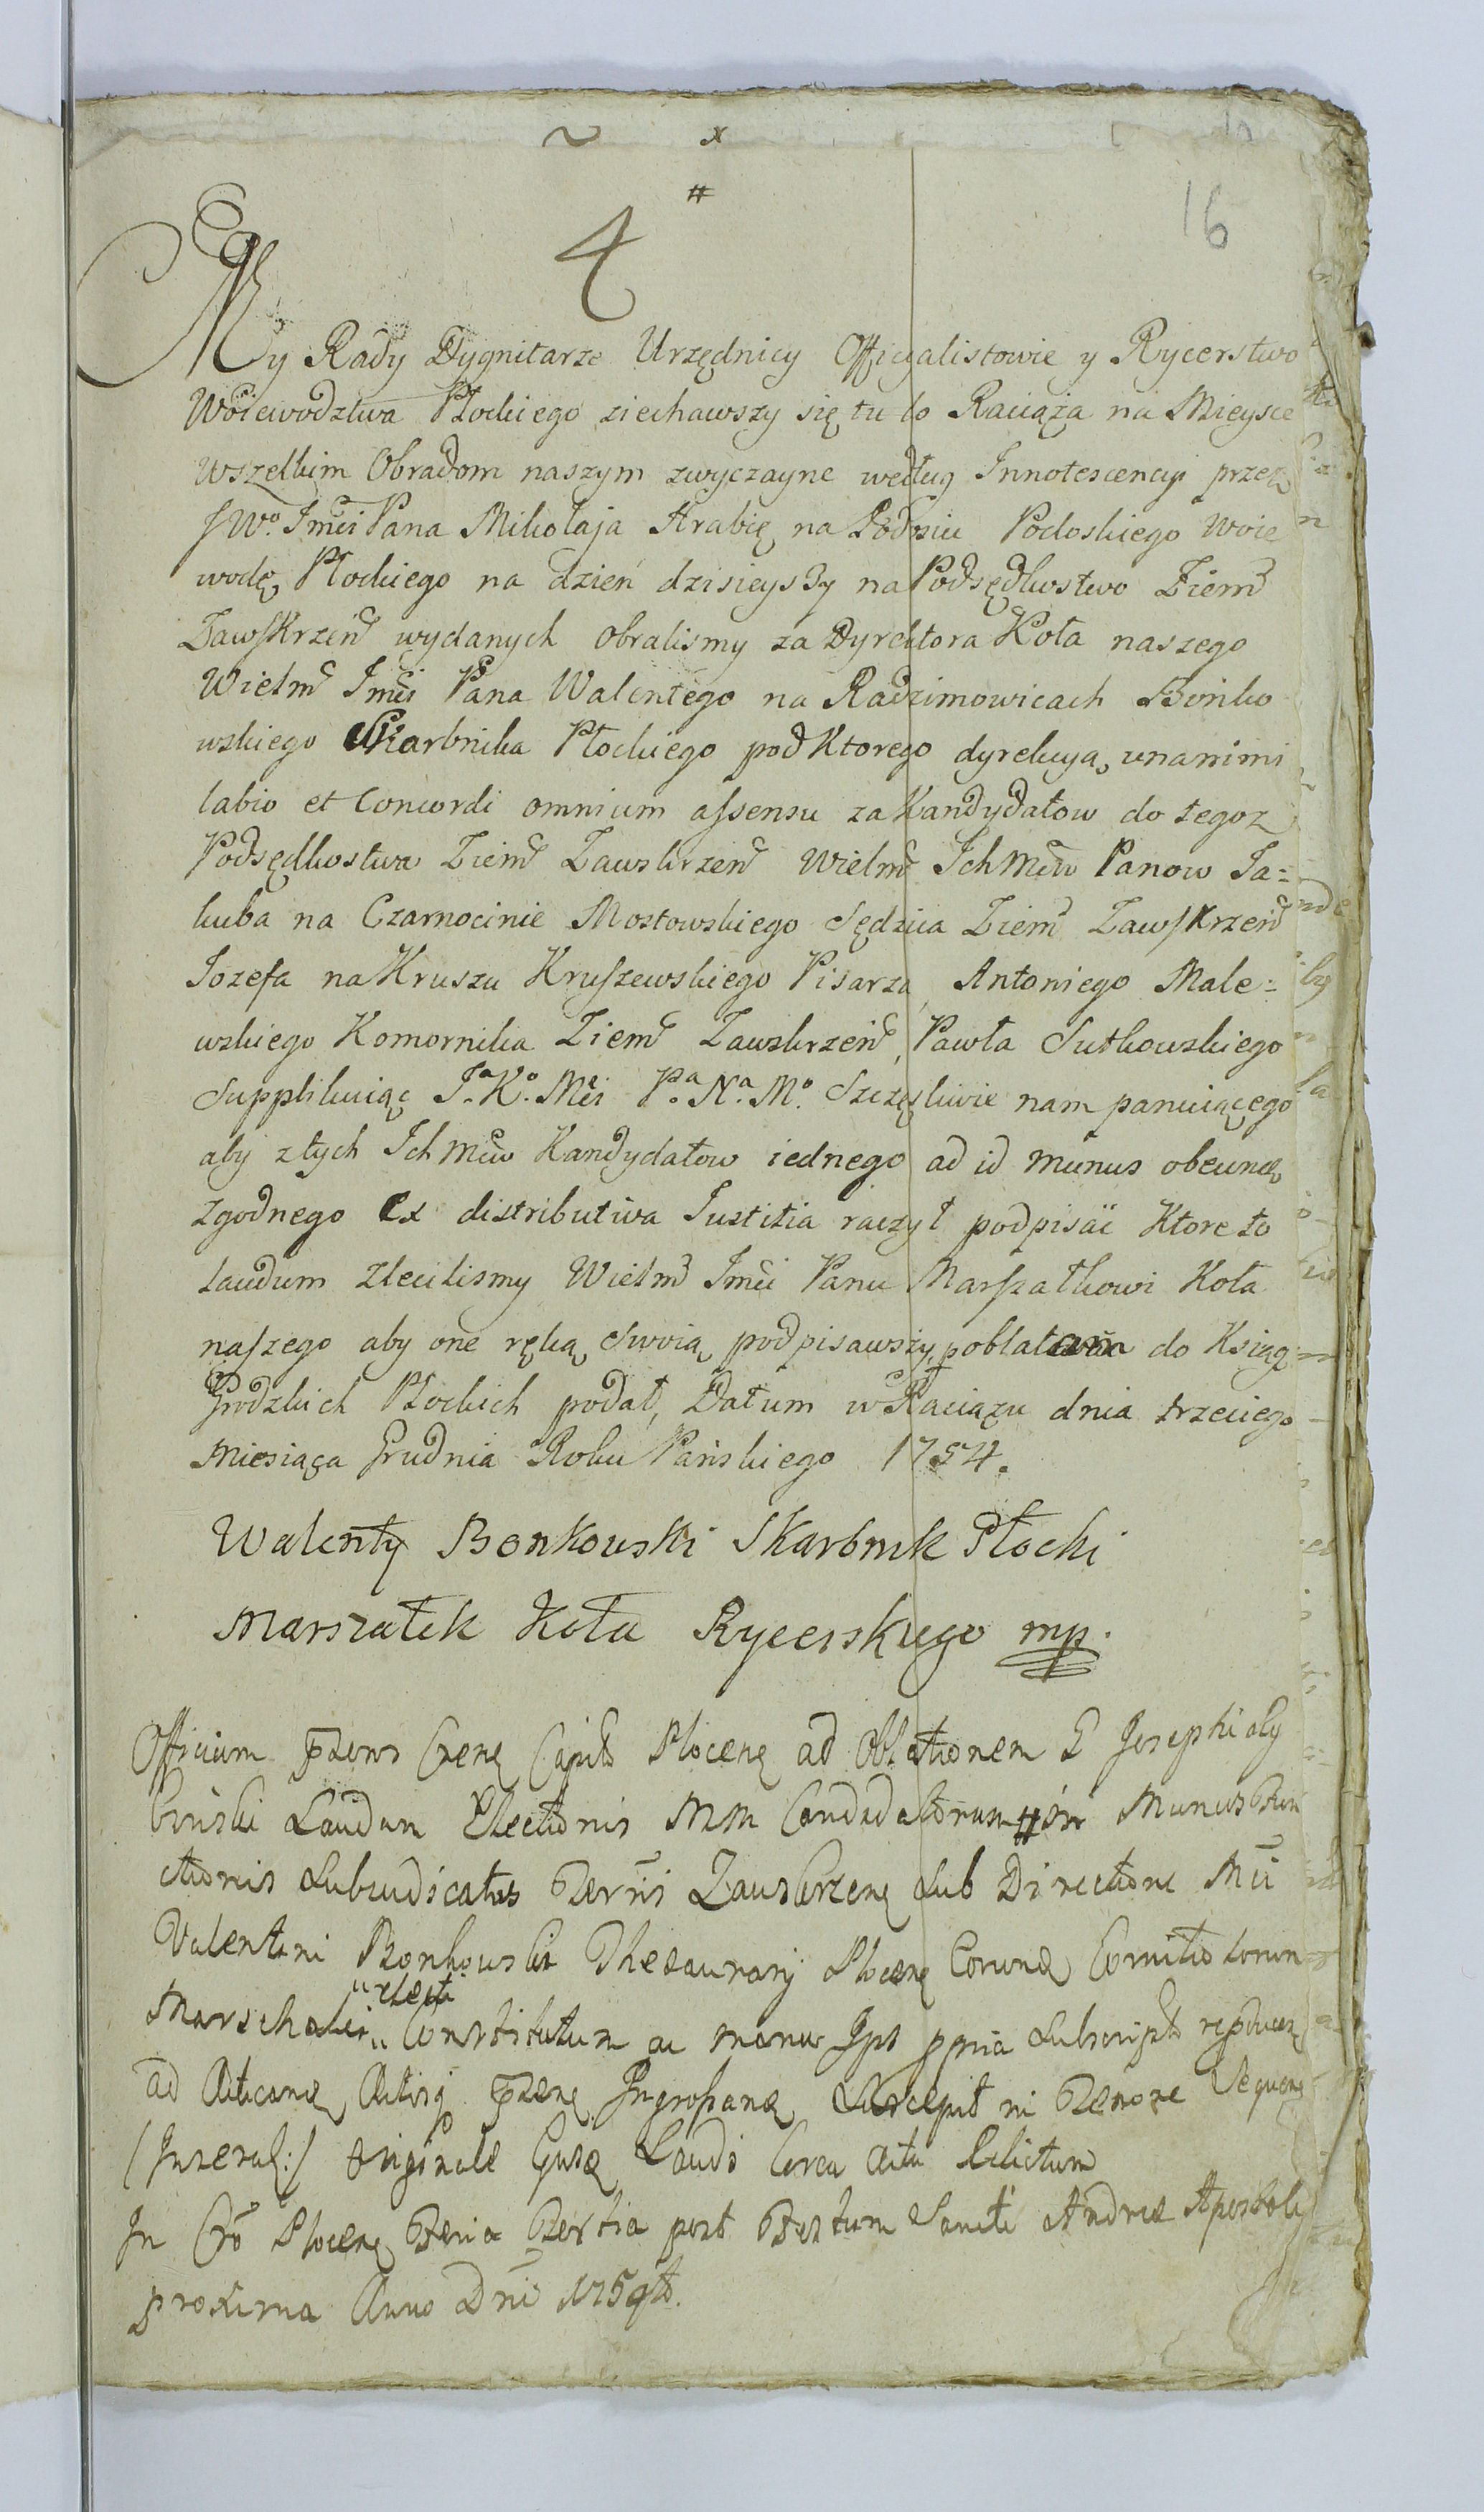 ~ x
#
4
16
My Rady Dygnitarze Urzędnicy Officyalistowie y Rycerstwo
Woiewodztwa Płockiego ziechawszy się tu do Raciąża na Mieysce
Wszelkim Obradom naszym zwyczayne według Innotescencyi przez
JWo. Jmci Pana Mikołaja Hrabię na Podosiu Podoskiego Woie
wodę Płockiego na dzień dzisieyszy na Podsędkostwo Ziem
Zawskrzen wydanych obralismy za Dyrektora Koła naszego
Wielm Jmci Pana Walentego na Radzimowicach Bońko
wskiego Skarbnika Płockiego pod Ktorego dyrekcyą unanimi
labio et Concordi omnium assensu za Kandydatow do tegoz
Podsędkostwa Ziem Zawskrzen Wielm Ichmciw Panow Ja=
kuba na Czarnocinie Mostowskiego Sędzica Ziem Zawskrzen
Jozefa na Kruszu Kruszewskiego Pisarza, Antoniego Male=
wskiego Komornika Ziem Zawskrzen, Pawła Sutkowskiego
Supplikuiąc Ja. Ko. Mci Pa. Na. Mo. Szczęsliwie nam panuiącego
aby ztych Ichmciw Kandydatow iednego ad id munus obeund
zgodnego Ex distributiva Justitia raczył podpisać Ktore to
Laudum zlecilismy Wielm Jmci Panu Marszałkowi Koła
naszego aby one ręką Swoią podpisawszy, do Ksiąg
Grodzkich Płockich podał, Datum w Raciązu dnia trzeciego
Miesiąca Grudnia Roku Pańskiego 1754.
Walenty Bonkowski Skarbnik Płocki
Marszałek Koła Rycerskiego mp.
Officium Capit Plocen ad Oblationem G Josephi
Laudum Electionis MM Candidatorum # in Munus
Subiudicatus Terris Zawskrzen Sub Directione
Valentini Bonkowski Thesaurarij Plocen
Marschalci "electi" Constitutum ac manu Ips ppria Subscript
ad Acticand Actisq Ingrossand Suscepit
originale Laudi Circa Acta Relictum
In Plocen Feria Tertia post Festum Sancti Andreae Apostoli
proxima Anno Dni 1754to.